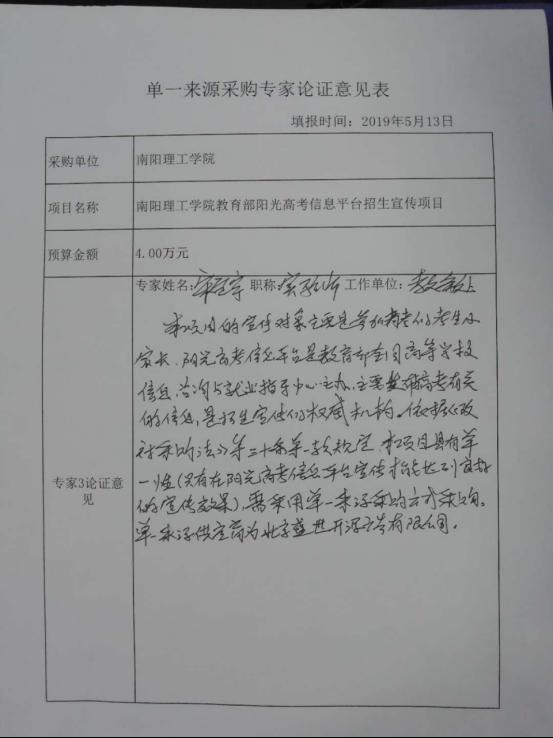 单一来源采购专家论证意见表
填报时间：2019年5月13日
采购单位 南阳理工学院
项目名称 南阳理工学院教育部阳光高考信息平台招生宣传项目
预算金额 4.00万元
专家姓名： 职称：实验师 工作单位：
专家3论证意见
本项目的宣传对象主要是参加高考的考生及
家长，阳光高考信息平台是教育部全国高等学校
信息咨询与就业指导中心主办，主要发布高考有关
的信息，是招生宣传的权威机构。依据《政
府采购法》第三十条第一款规定，本项目具有单
一性（只有在阳光高考信息平台宣传才能达到良好
的宣传效果），需采用单一来源采购方式采购。
单一来源供应商为北京盛世开源广告有限公司。